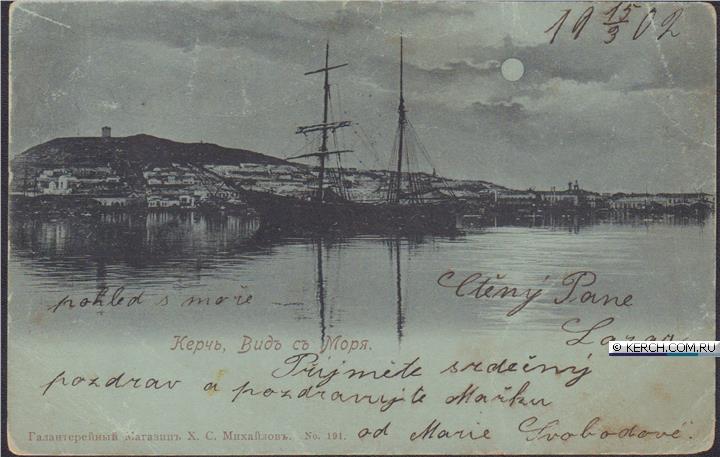 19 15/9 02
pohled s moře
Ctěný Pane
Керчь, Видъ съ Моря.
© KERCH.COM.RU
Přijměte srdečný
pozdrav a pozdravujte Mařku
od Marie Svobodové.
Галантерейный магазинъ Х. С. Михайловъ. No. 191.